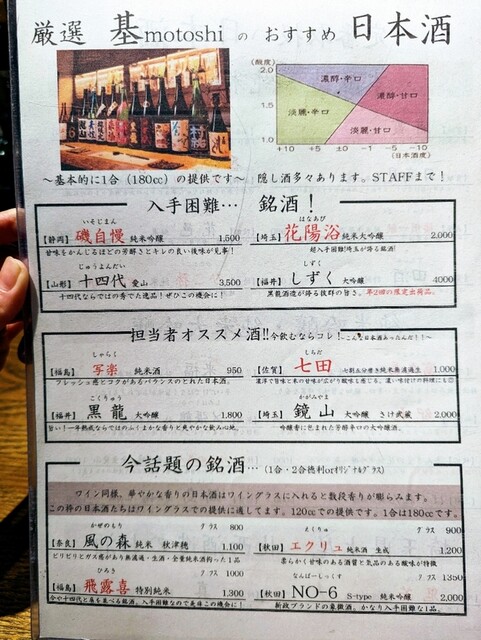 厳選 基motoshi の おすすめ 日本酒
(酸度)
2.0
1.5
1.0
濃醇・辛口
濃醇・甘口
淡麗・辛口
淡麗・甘口
+10 +5 ±0 -5 -10
(日本酒度)
～基本的に1合（180cc）の提供です～ 隠し酒多々あります。STAFFまで！
入手困難… 銘酒！
いそじまん
【静岡】磯自慢 純米吟醸 1,500
甘味をかんじるほどの芳醇さとキレの良い後味が見事！
はなあび
【埼玉】花陽浴 純米大吟醸 2,000
超入手困難！埼玉が誇る銘酒！
じゅうよんだい
【山形】十四代 愛山 3,500
十四代ならではの秀でた逸品！ぜひこの機会に！
しずく
【福井】しずく 大吟醸 4000
黒龍酒造が誇る抜群の旨さ。年2回の限定出荷品。
担当者オススメ酒!!今飲むならコレ！
～こんな日本酒あったんだ！！～
しゃらく
【福島】写楽 純米酒 950
フレッシュ感とコクがあるバランスのとれた日本酒。
しちだ
【佐賀】七田 七割五分磨き純米無濾過生 1,000
濃淳で旨味と木の甘味が広がり酸味も感じる。濃い味付けの料理にも◎
こくりゅう
【福井】黒龍 大吟醸 1,800
旨い！一年熟成ならではのふくよかな香りと爽やかな飲み心地。
かがみやま
【埼玉】鏡山 大吟醸 さけ武蔵 2,000
吟醸香に包まれた芳醇辛口の大吟醸酒。
今話題の銘酒…（1合・2合徳利orｵﾘｼﾞﾅﾙｸﾞﾗｽ）
ワイン同様、華やかな香りの日本酒はワイングラスに入れると数段香りが膨らみます。
この枠の日本酒たちはワイングラスでの提供に適してます。120ccでの提供です。1合は180ccです。
かぜのもり グラス 800
【奈良】風の森 純米 秋津穂 1,100
ピリピリとガス感があり無濾過・生酒・全量純米酒拘った1品
えくりゅ グラス 900
【秋田】エクリュ 純米酒 生成 1,200
柔らかく甘味のある酒質と気品のある酸味が特徴
ひろき グラス 1000
【福島】飛露喜 特別純米 1,300
今や十四代と肩を並べる銘酒。入手困難なので是非この機会に！
なんばーしっくす グラス 1350
【秋田】NO-6 S-type 純米吟醸 2,000
新政ブランドの象徴酒。かなり入手困難な1品。